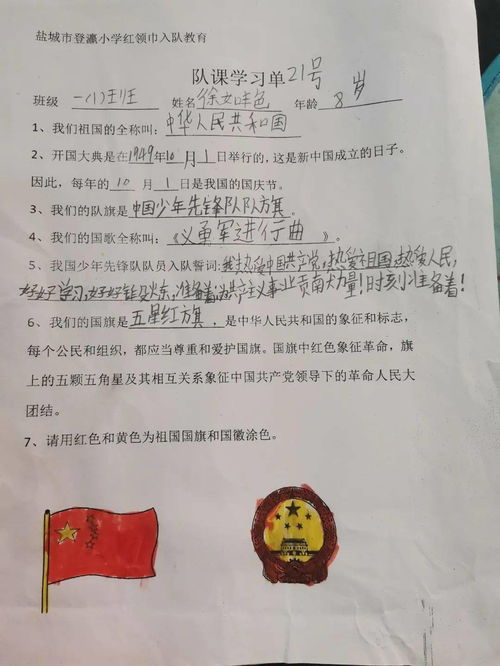 盐城市登瀛小学红领巾入队教育
队课学习单 21号
班级 一(1)班 姓名 徐 色 年龄 8岁
1、我们祖国的全称叫：中华人民共和国
2、开国大典是在1949年10月1日举行的，这是新中国成立的日子。
因此，每年的10月1日是我国的国庆节。
3、我们的队旗是中国少年先锋队队旗。
4、我们的国歌全称叫：《义勇军进行曲》。
5、我国少年先锋队队员入队誓词：我热爱中国共产党，热爱祖国，热爱人民，
好好学习，好好锻炼，准备着：为共产主义事业贡献力量！时刻准备着！
6、我们的国旗是五星红方旗，是中华人民共和国的象征和标志，
每个公民和组织，都应当尊重和爱护国旗。国旗中红色象征革命，旗
上的五颗五角星及其相互关系象征中国共产党领导下的革命人民大
团结。
7、请用红色和黄色为祖国国旗和国徽涂色。